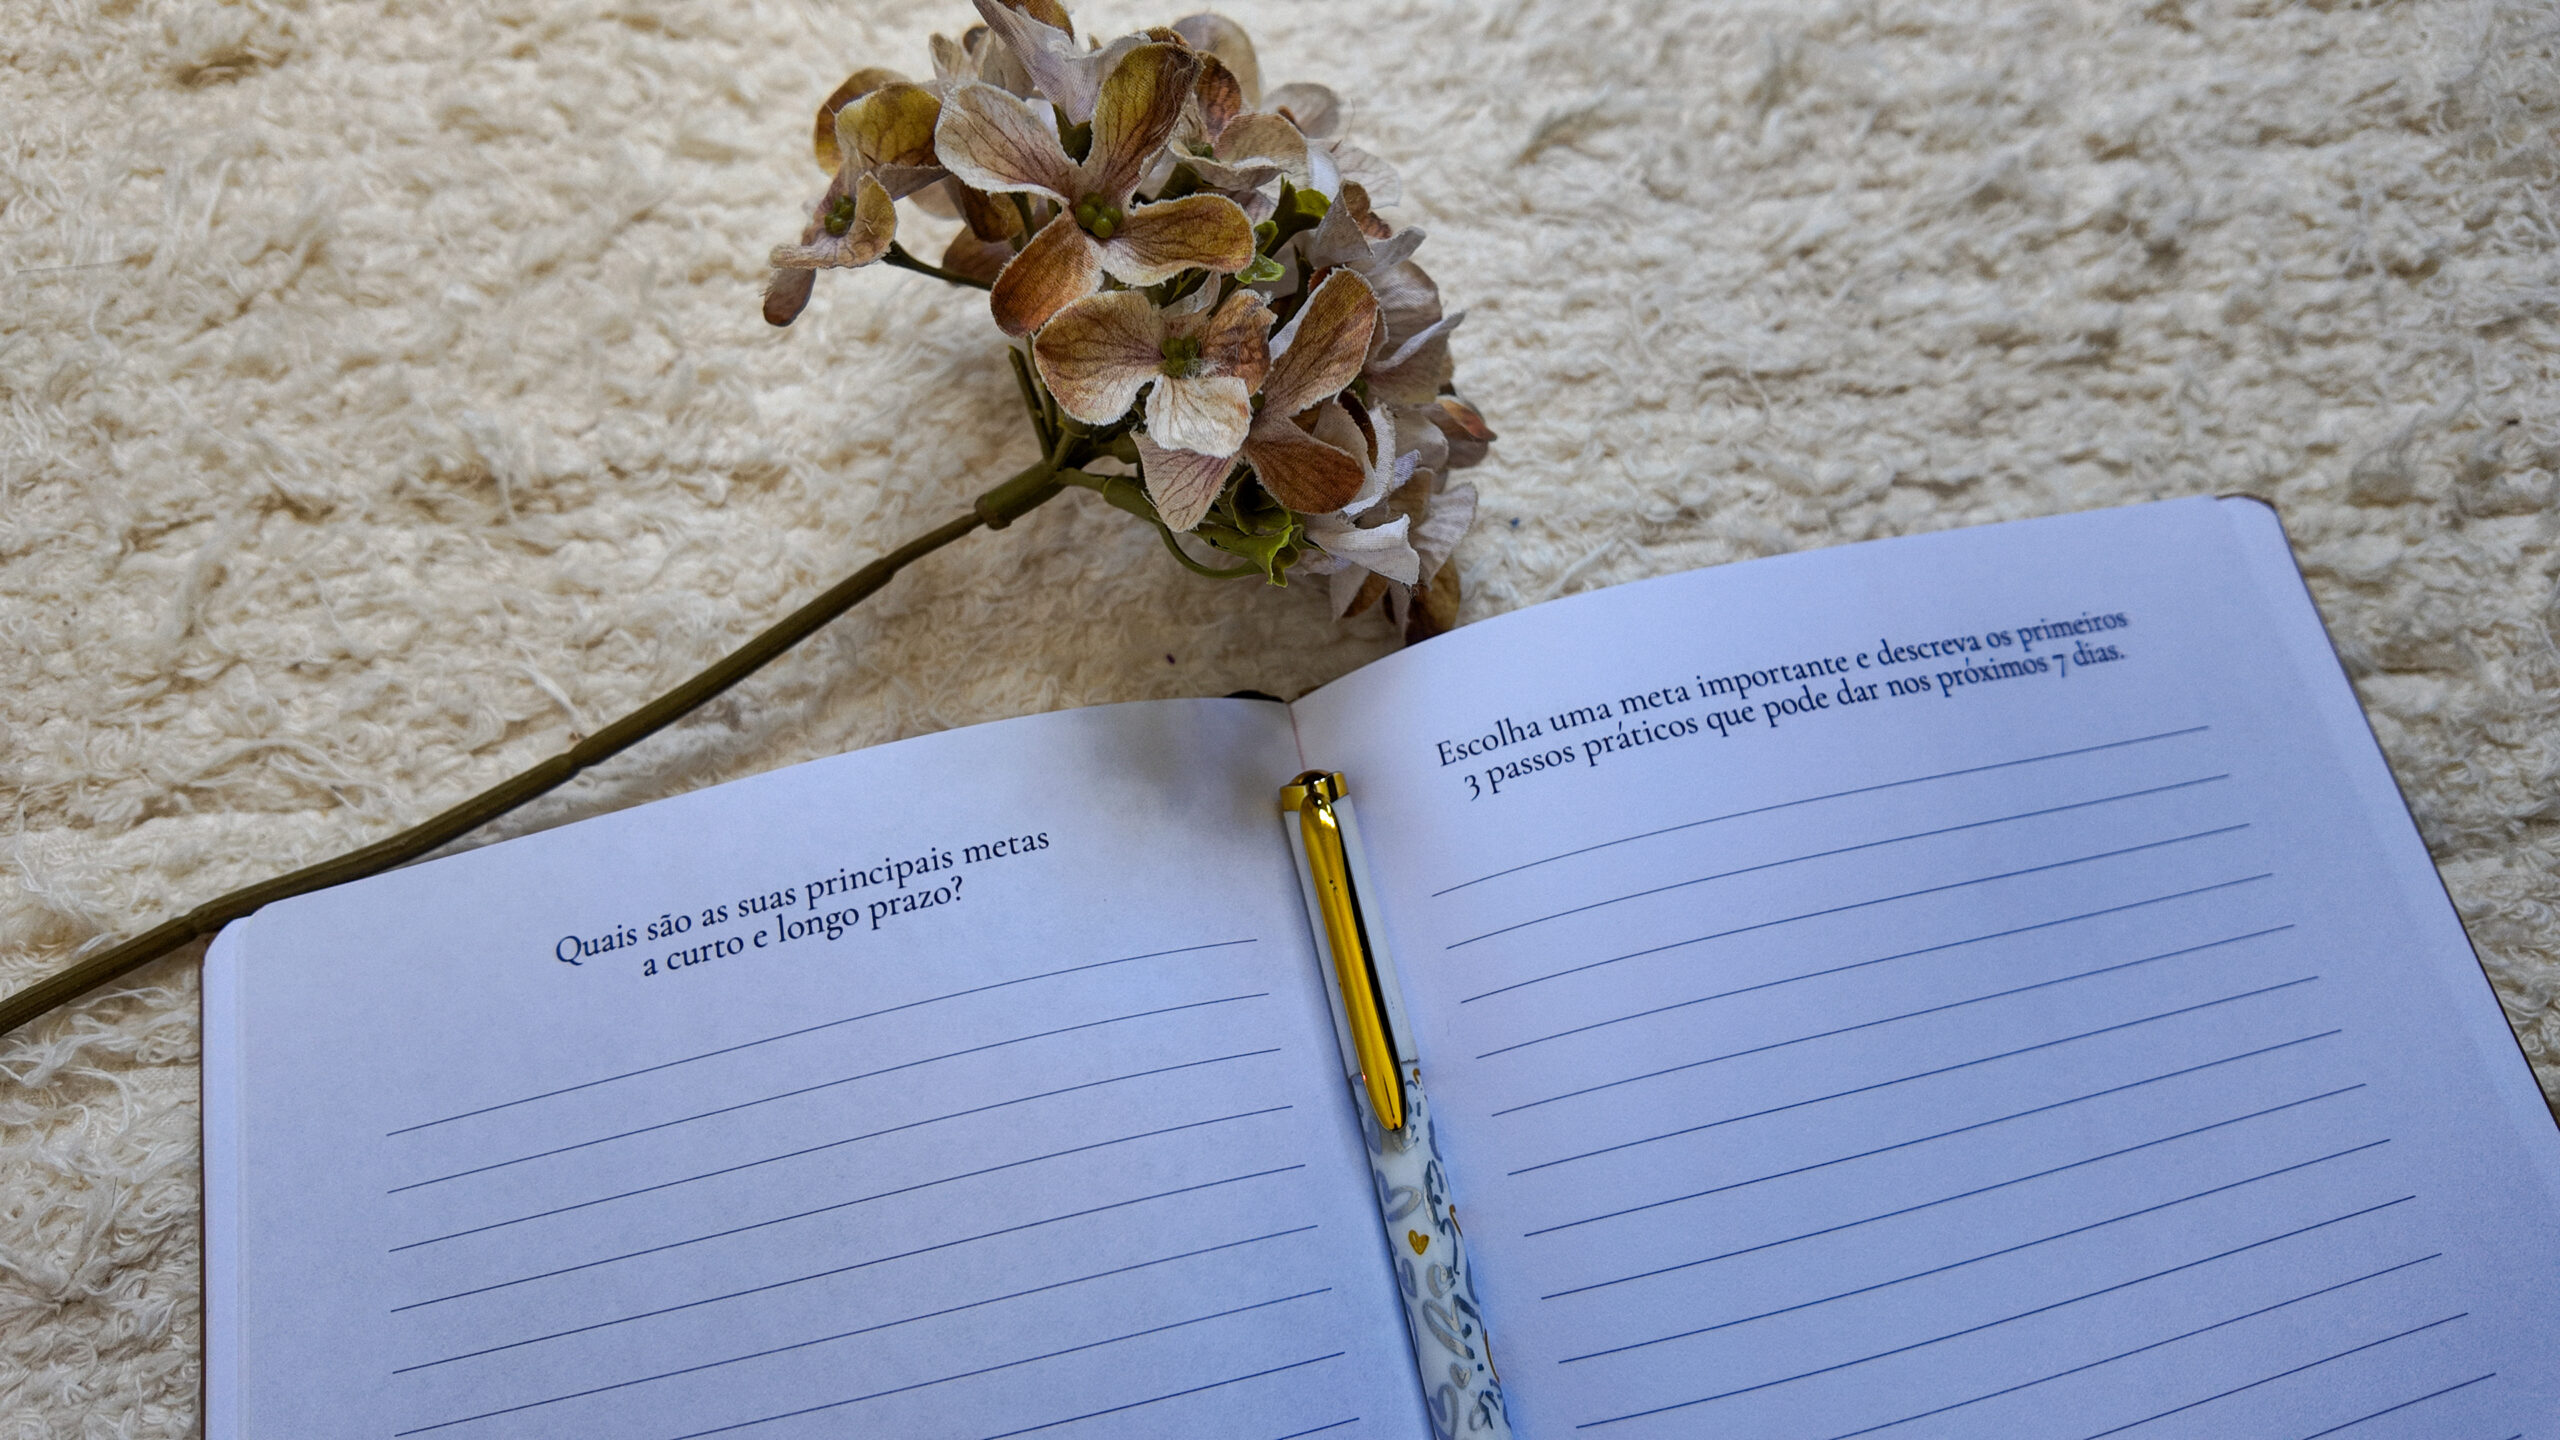 Quais são as suas principais metas
a curto e longo prazo?
Escolha uma meta importante e descreva os primeiros
3 passos práticos que pode dar nos próximos 7 dias.